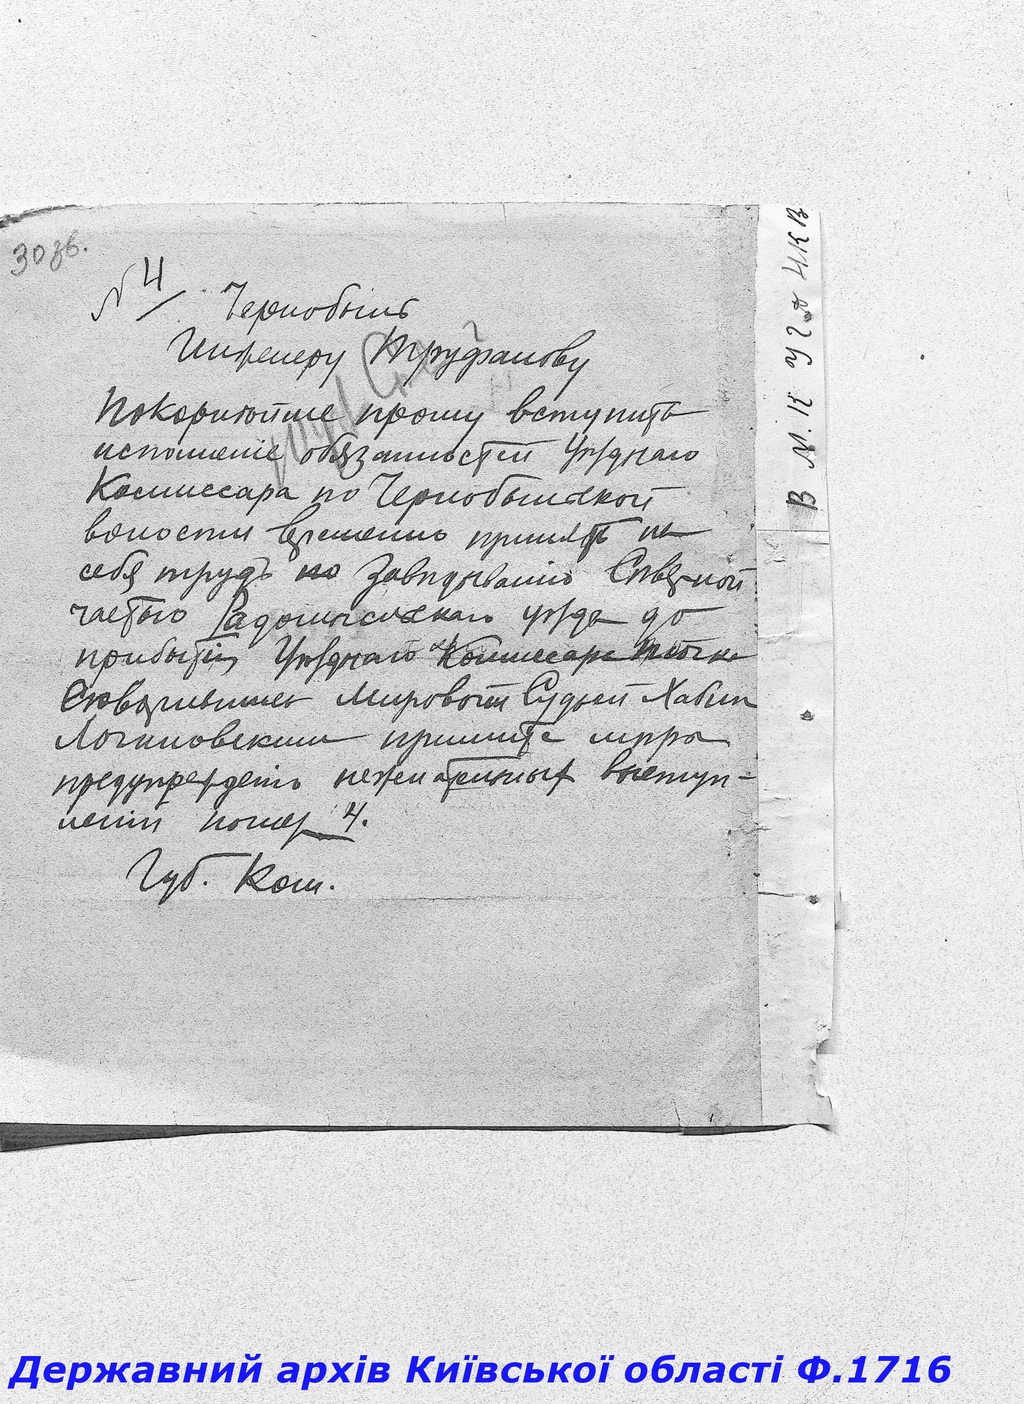 30 зв.
№ 4
Чернобыль
Инженеру Труфанову
Покорнѣйше прошу вступить
исполненіе обязанностей Уѣзднаго
Комиссара по Чернобыльской
волости временно принять на
себя трудъ по завѣдыванію Сѣверной
частью Радомысльскаго уѣзда до
прибытія Уѣзднаго Комиссара
Мировой Судьей Хабно
принять мѣры
предупредить нежелательныя выступ-
ленія номер 4.
Губ. Ком.
Державний архів Київської області Ф.1716